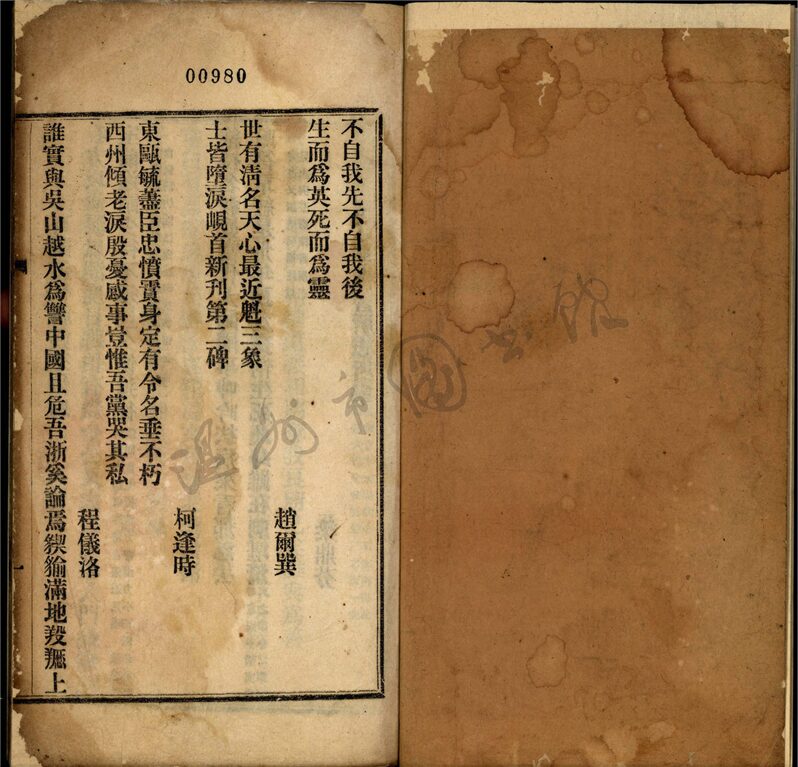 00980
不自我先不自我後
生而爲英死而爲靈
趙爾巽
世有淸名天心最近魁三象
士皆墮淚峴首新刊第二碑
柯逢時
東甌毓藎臣忠憤賫身定有令名垂不朽
西州傾老淚殷憂感事豈惟吾黨哭其私
程儀洛
誰實與吳山越水爲讐中國且危吾浙奚論焉猰貐滿地殺
上
溫州市圖書館